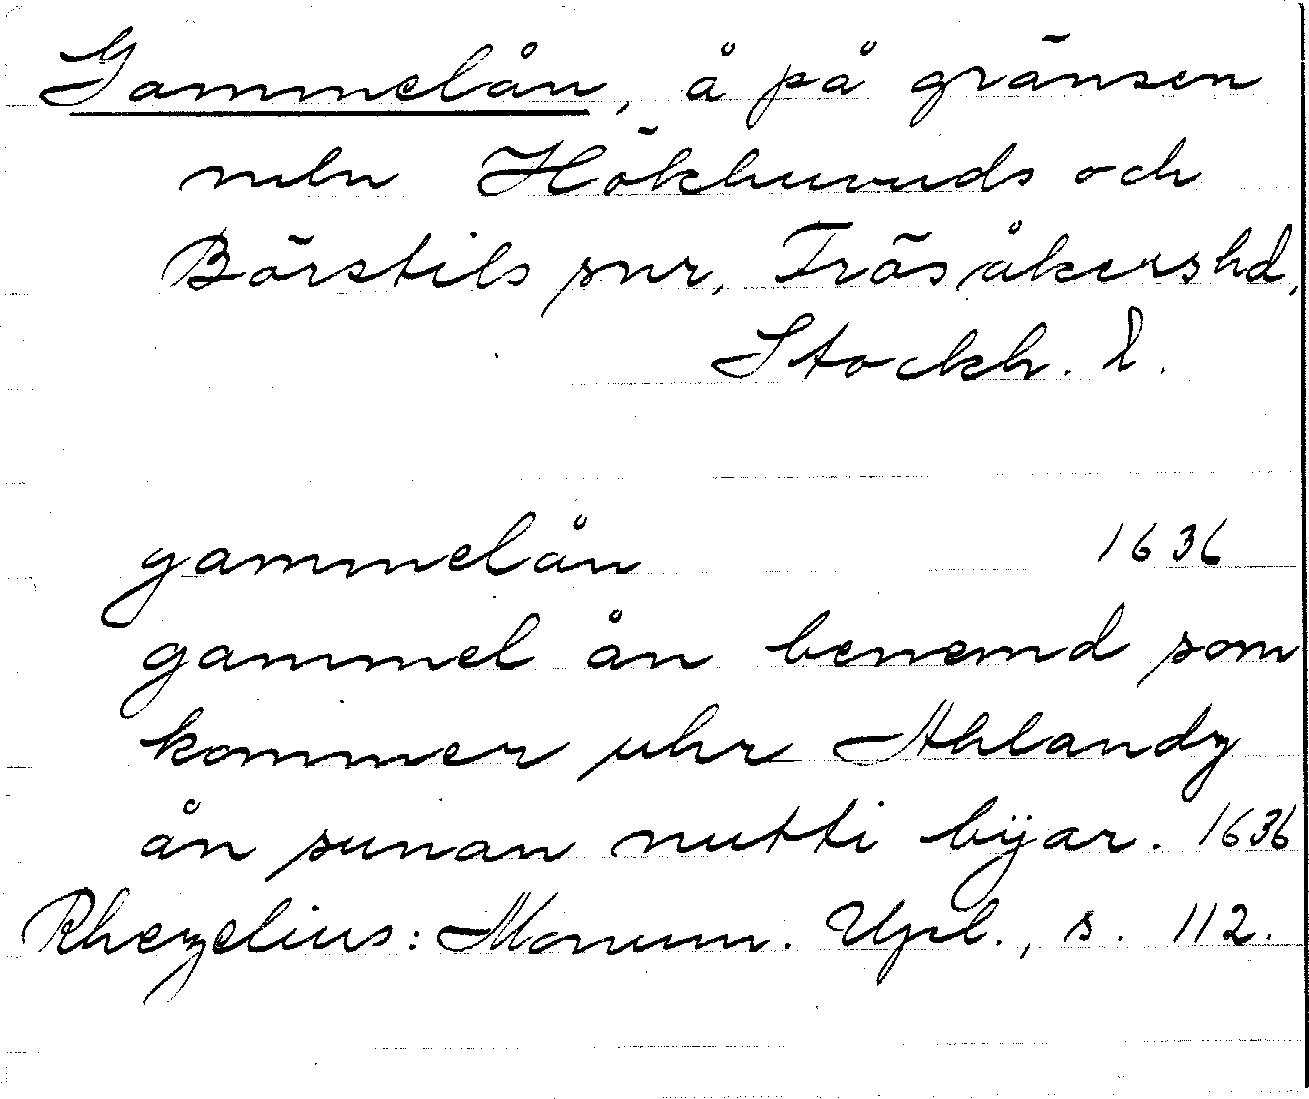 Gammelån, å på gränsen
mln Hökhuvuds och
Börstils snr, Frösåkers hd,
Stockh. l.
gammelån 1636
gammel ån benemd som
kommer uhr Ahlandz
ån sunan nutti bÿar. 1636
Rhezelius: Monum. Upl., s. 112.